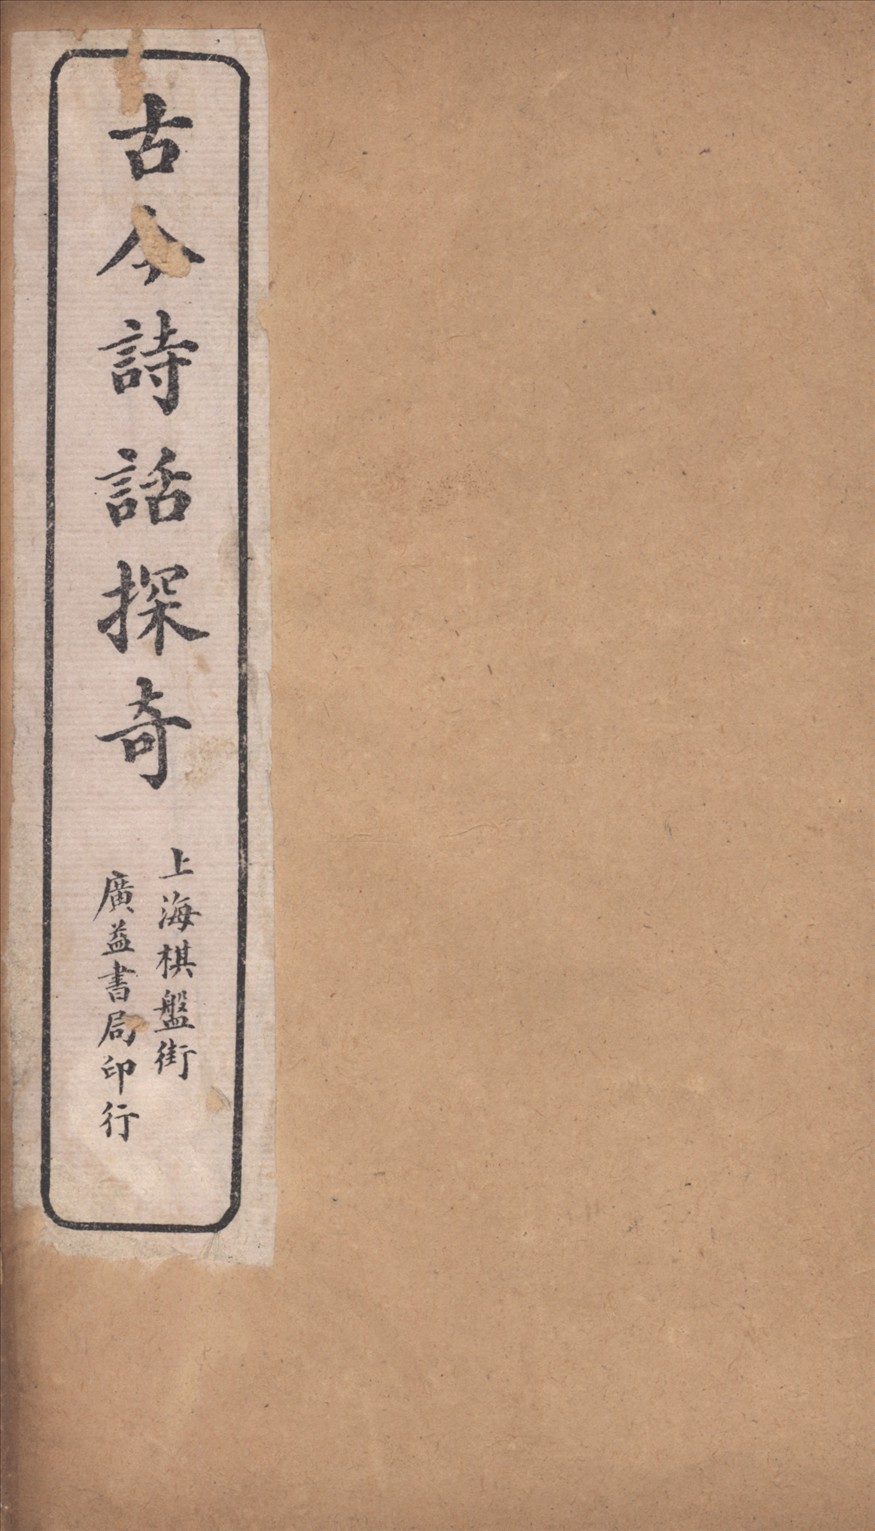 古今詩話探奇
上海棋盤街
廣益書局印行